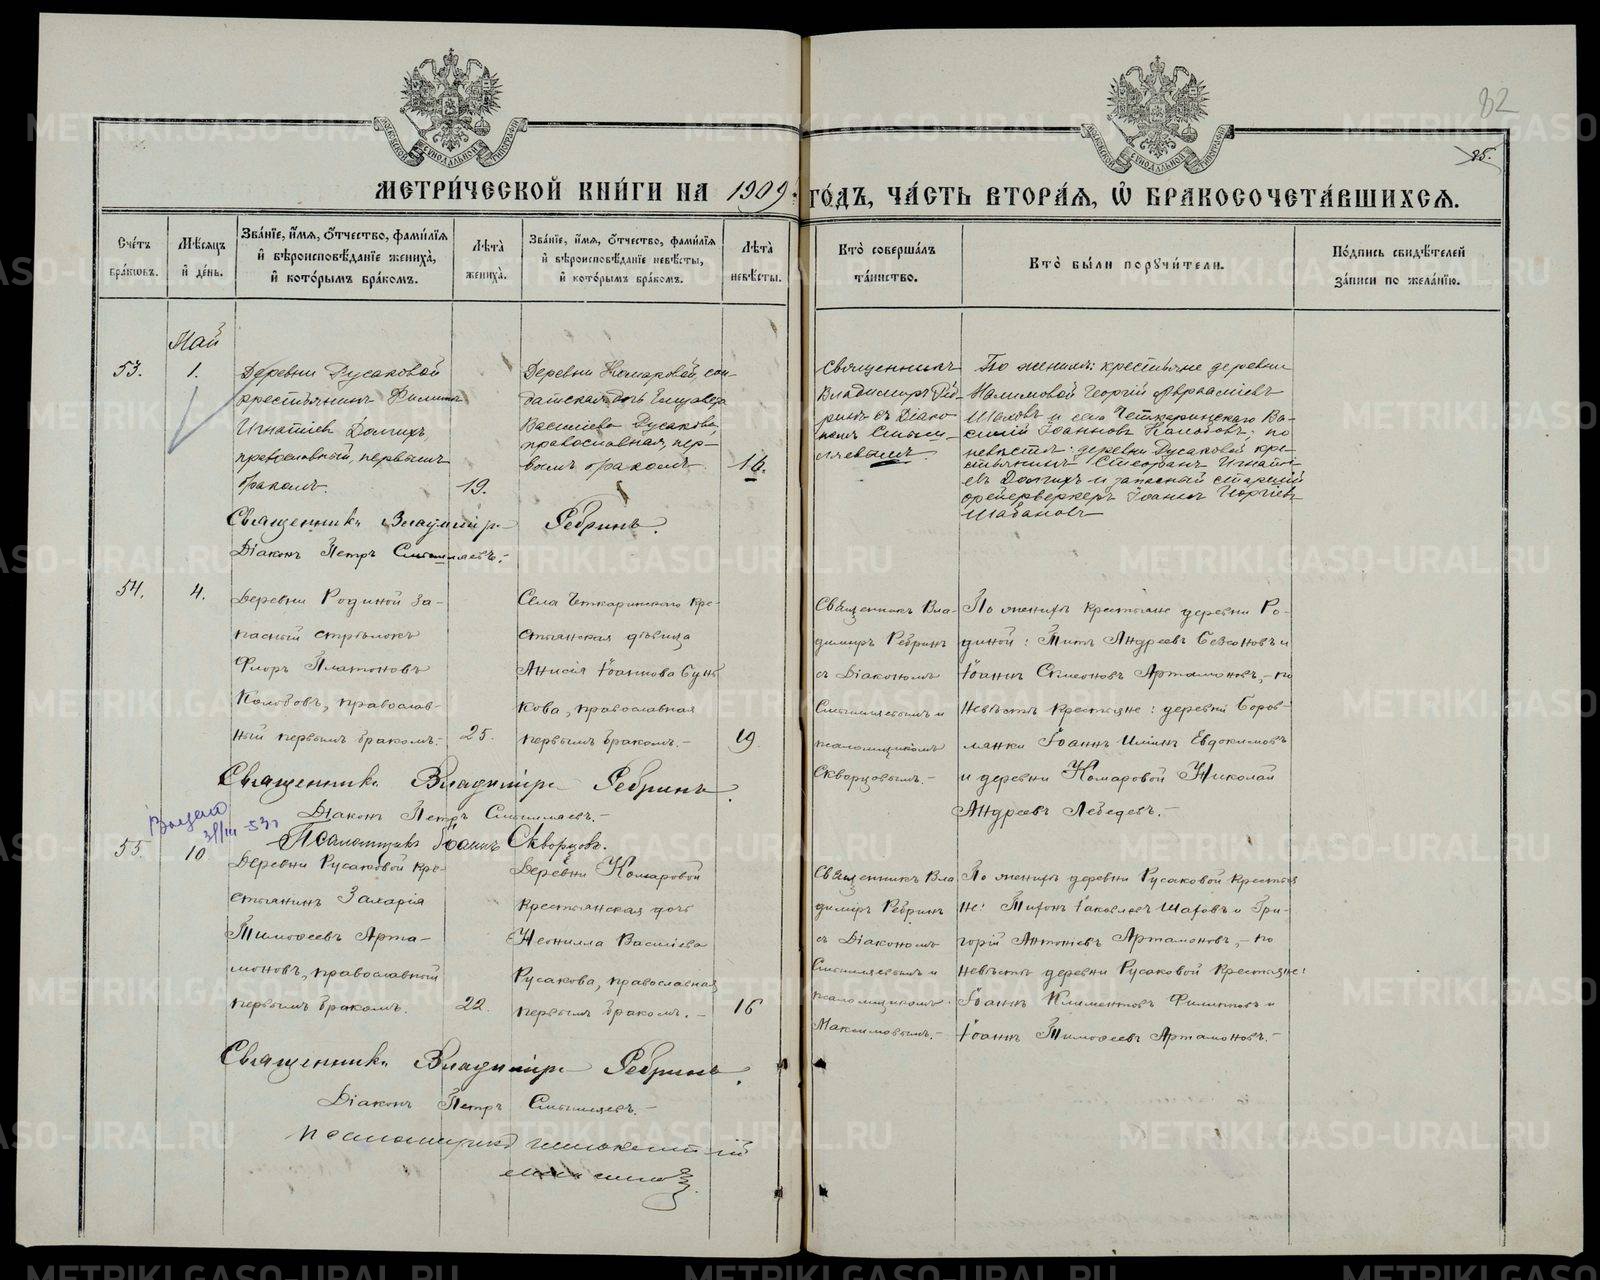 82
85.
МЕТРИ́ЧЕСКОЙ КНИ́ГИ НА 1909. ГО́ДЪ, ЧА́СТЬ ВТОРА́Я, Ѡ҆ БРАКОСОЧЕТА́ВШИХСЯ.
Сче́тъ бра́ковъ.
Мѣ́сяцъ и҆ де́нь.
Зва́нїе, и҆́мя, ѻ҆́тчество, фами́лїя и҆ вѣроисповѣ́данїе жениха̀, и҆ кото́рымъ бра́комъ.
Лѣта̀ жениха̀.
Зва́нїе, и҆́мя, ѻ҆́тчество, фами́лїя и҆ вѣроисповѣ́данїе невѣ́сты, и҆ кото́рымъ бра́комъ.
Лѣта̀ невѣ́сты.
Кто̀ соверша́лъ та́инство.
Кто̀ бы́ли порꙋчи́тели.
По́дпись свидѣ́телей за́писи по жела́нїю.
Май
53.
1.
Деревни Русаковой
крестьянинъ Филиппъ
Игнатіев Долгихъ,
православный, первымъ
бракомъ.
19.
Деревни Комаровой, сол-
датская дочь Елизавета
Василіева Русакова,
православная, пер-
вымъ бракомъ.
16.
Священникъ
Владимиръ Реб-
ринъ съ Діако-
номъ Смыш-
ляевымъ.
По женихѣ: крестьяне деревни
Налимовой Георгій Авраамiевъ
Шаховъ и села Четкаринскаго Ва-
силій Іоанновъ Колобовъ; по
невѣстѣ: деревни Русаковой кре-
стьянинъ Стефанъ Игнаті-
евъ Долгихъ и запасный старшій
фейерверкеръ Іоаннъ Георгіевъ
Шабановъ
Священникъ Владимiръ Ребринъ.
Діаконъ Петръ Смышляевъ.-
54.
4.
Деревни Родиной за-
пасный стрѣлокъ
Флоръ Платоновъ
Колобовъ, православ-
ный первымъ бракомъ.-
25.
Села Четкаринскаго кре-
стьянская дѣвица
Анисія Іоаннова Сунь-
кова, православная
первымъ бракомъ.-
19.
Священникъ Вла-
димиръ Ребринъ
съ Діакономъ
Смышляевымъ и
псаломщикомъ
Скворцовымъ.-
По женихѣ крестьяне деревни Ро-
диной: Титъ Андреевъ Безсоновъ и
Іоаннъ Симеоновъ Артамоновъ,- по
невѣстѣ крестьяне: деревни Боров-
лянки Іоаннъ Илiинъ Евдокимовъ
и деревни Комаровой Николай
Андреевъ Лебедевъ.-
Священникъ Владимiръ Ребринъ.
Діаконъ Петръ Смышляевъ.-
Псаломщикъ Іоаннъ Скворцовъ.
55.
10
Деревни Русаковой кре-
стьянинъ Захарія
Тимоѳеевъ Арта-
моновъ, православный
первымъ бракомъ.
22.
Деревни Комаровой
крестьянская дочь
Неонилла Василіева
Русакова, православная
первымъ бракомъ.-
16
Священникъ Вла-
димiръ Ребринъ
съ Діакономъ
Смышляевымъ и
псаломщикомъ
Максимовымъ.-
По женихѣ деревни Русаковой крестья-
не: Тихонъ Іаковлевъ Шаховъ и Гри-
горій Антонiевъ Артамоновъ,- по
невѣстѣ деревни Русаковой крестьяне:
Іоаннъ Климентовъ Филипповъ и
Іоаннъ Тимоѳеевъ Артамоновъ.-
Священникъ Владимiръ Ребринъ.
Діаконъ Петръ Смышляевъ.-
METRIKI.GASO-URAL.RU